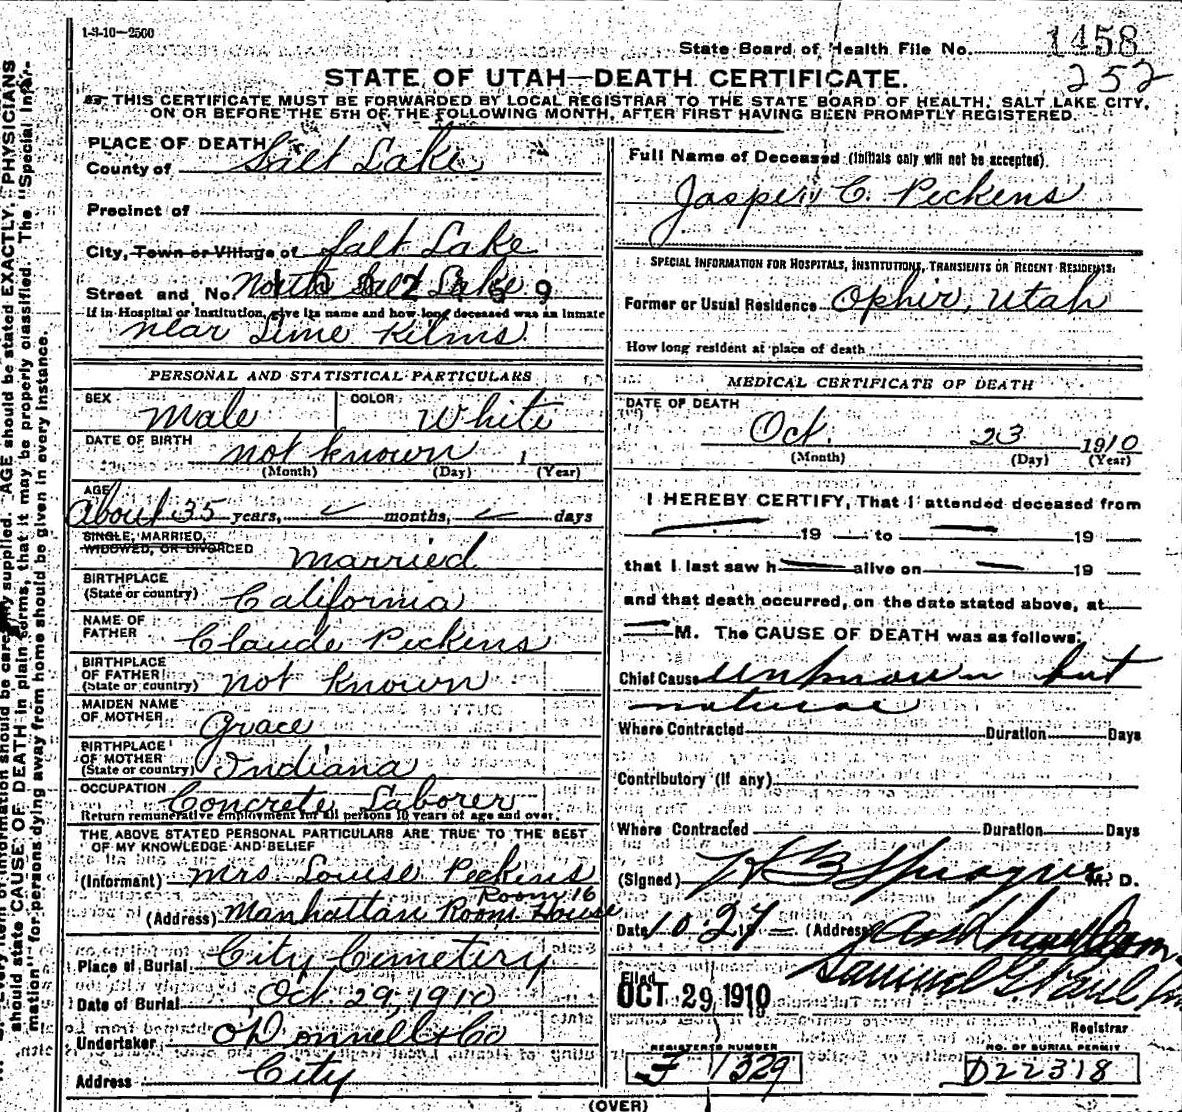 1-3-10—2500
State Board of Health File No. 1458
252
STATE OF UTAH—DEATH CERTIFICATE.
THIS CERTIFICATE MUST BE FORWARDED BY LOCAL REGISTRAR TO THE STATE BOARD OF HEALTH, SALT LAKE CITY,
ON OR BEFORE THE 5TH OF THE FOLLOWING MONTH, AFTER FIRST HAVING BEEN PROMPTLY REGISTERED.
PLACE OF DEATH
County of Salt Lake
Precinct of
City, Town or Village of Salt Lake
Street and No. North Salt Lake
If in Hospital or Institution, give its name and how long deceased was an inmate
near Lime Kilns
PERSONAL AND STATISTICAL PARTICULARS
SEX Male COLOR White
DATE OF BIRTH not known
(Month) (Day) (Year)
AGE
About 35 years, months, days
SINGLE, MARRIED,
WIDOWED, OR DIVORCED Married
BIRTHPLACE
(State or country) California
NAME OF
FATHER Claude Pickens
BIRTHPLACE
OF FATHER
(State or country) not known
MAIDEN NAME
OF MOTHER Grace
BIRTHPLACE
OF MOTHER
(State or country) Indiana
OCCUPATION Concrete Laborer
Return remunerative employment for all persons 10 years of age and over.
THE ABOVE STATED PERSONAL PARTICULARS ARE TRUE TO THE BEST
OF MY KNOWLEDGE AND BELIEF
(Informant) Mrs Louise Peckins
Room 16
(Address) Manhattan Room House
Place of Burial City Cemetery
Date of Burial Oct. 29, 1910
Undertaker O'Donnell & Co
Address City
Full Name of Deceased (Initials only will not be accepted).
Jasper C. Peckens
SPECIAL INFORMATION FOR HOSPITALS, INSTITUTIONS, TRANSIENTS OR RECENT RESIDENTS:
Former or Usual Residence Ophir, Utah
How long resident at place of death
MEDICAL CERTIFICATE OF DEATH
DATE OF DEATH
Oct. 23 1910
(Month) (Day) (Year)
I HEREBY CERTIFY, That I attended deceased from
19 to 19
that I last saw h alive on 19
and that death occurred, on the date stated above, at
M. The CAUSE OF DEATH was as follows:
Chief Cause unknown but
natural
Where Contracted Duration Days
Contributory (if any)
Where Contracted Duration Days
(Signed) H B Sprague M. D.
Date 10.27 19 (Address)
Filed
OCT 29 1910 Samuel G. Paul
Registrar
REGISTERED NUMBER NO. OF BURIAL PERMIT
F 1329 D22318
(OVER)
AGE should be stated EXACTLY. PHYSICIANS
should state CAUSE OF DEATH in plain terms, that it may be properly classified. The "Special Infor-
mation" for persons dying away from home should be given in every instance.